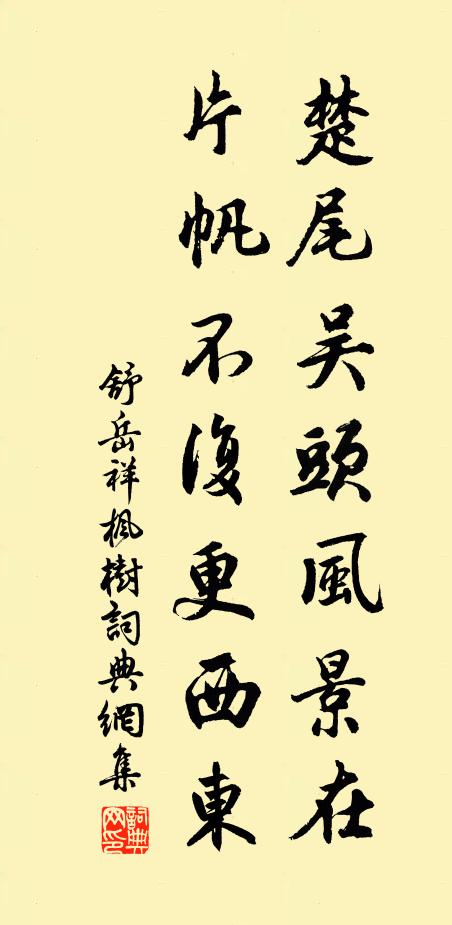 楚尾吴頭風景在
片帆不復更西東
舒岳祥楓樹詞典網集
詞典网印